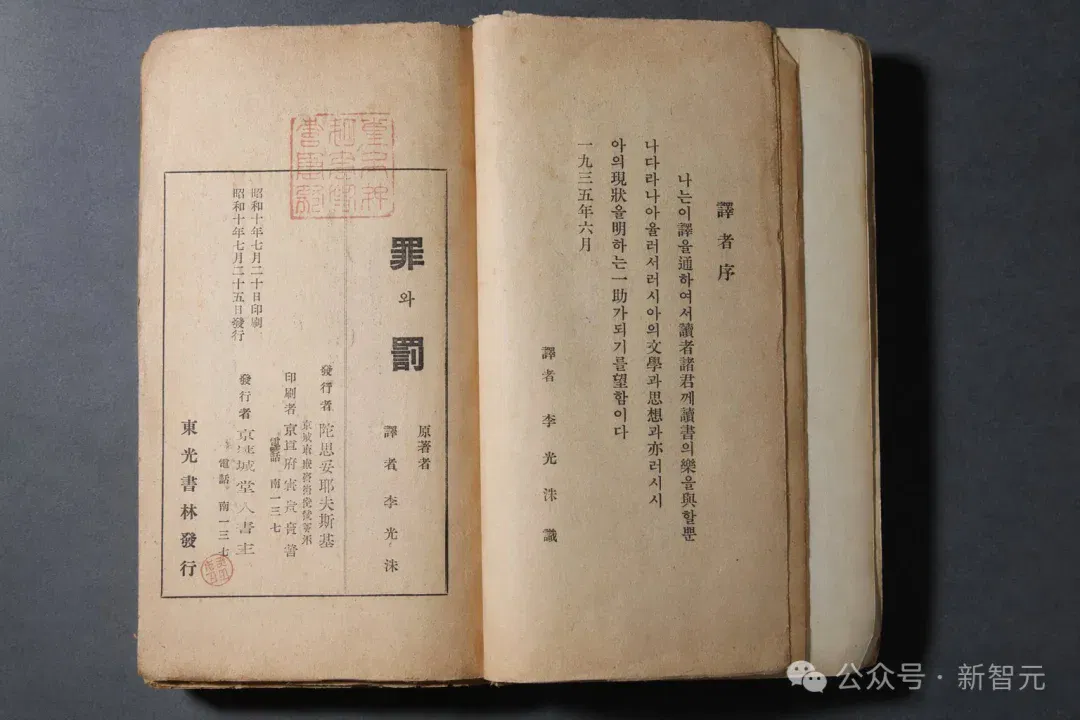 譯者序
나는이譯을通하여서讀者諸君께讀書의樂을與할뿐
나다라나아울러서러시아의文學과思想과亦러시시
아의現狀을明하는一助가되기를望함이다
一九三五年六月
譯者 李光洙 識
罪와罰
原著者
譯者 李光洙
發行者 陀思妥耶夫斯基
印刷者
電話 南一三七
昭和十年七月二十日印刷
昭和十年七月二十五日發行
發行者
電話 南一三七
東光書林發行
公众号 · 新智元